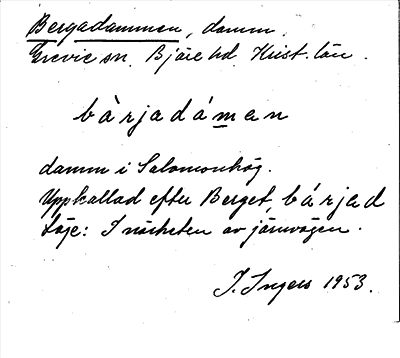 Bergadammen, damm.
Grevie sn. Bjäre hd. Krist. län.
bàrjadáman
damm i Salomonhög.
Uppkallad efter Berget, bárjad
Läge: I närheten av järnvägen.
I. Ingers 1953.